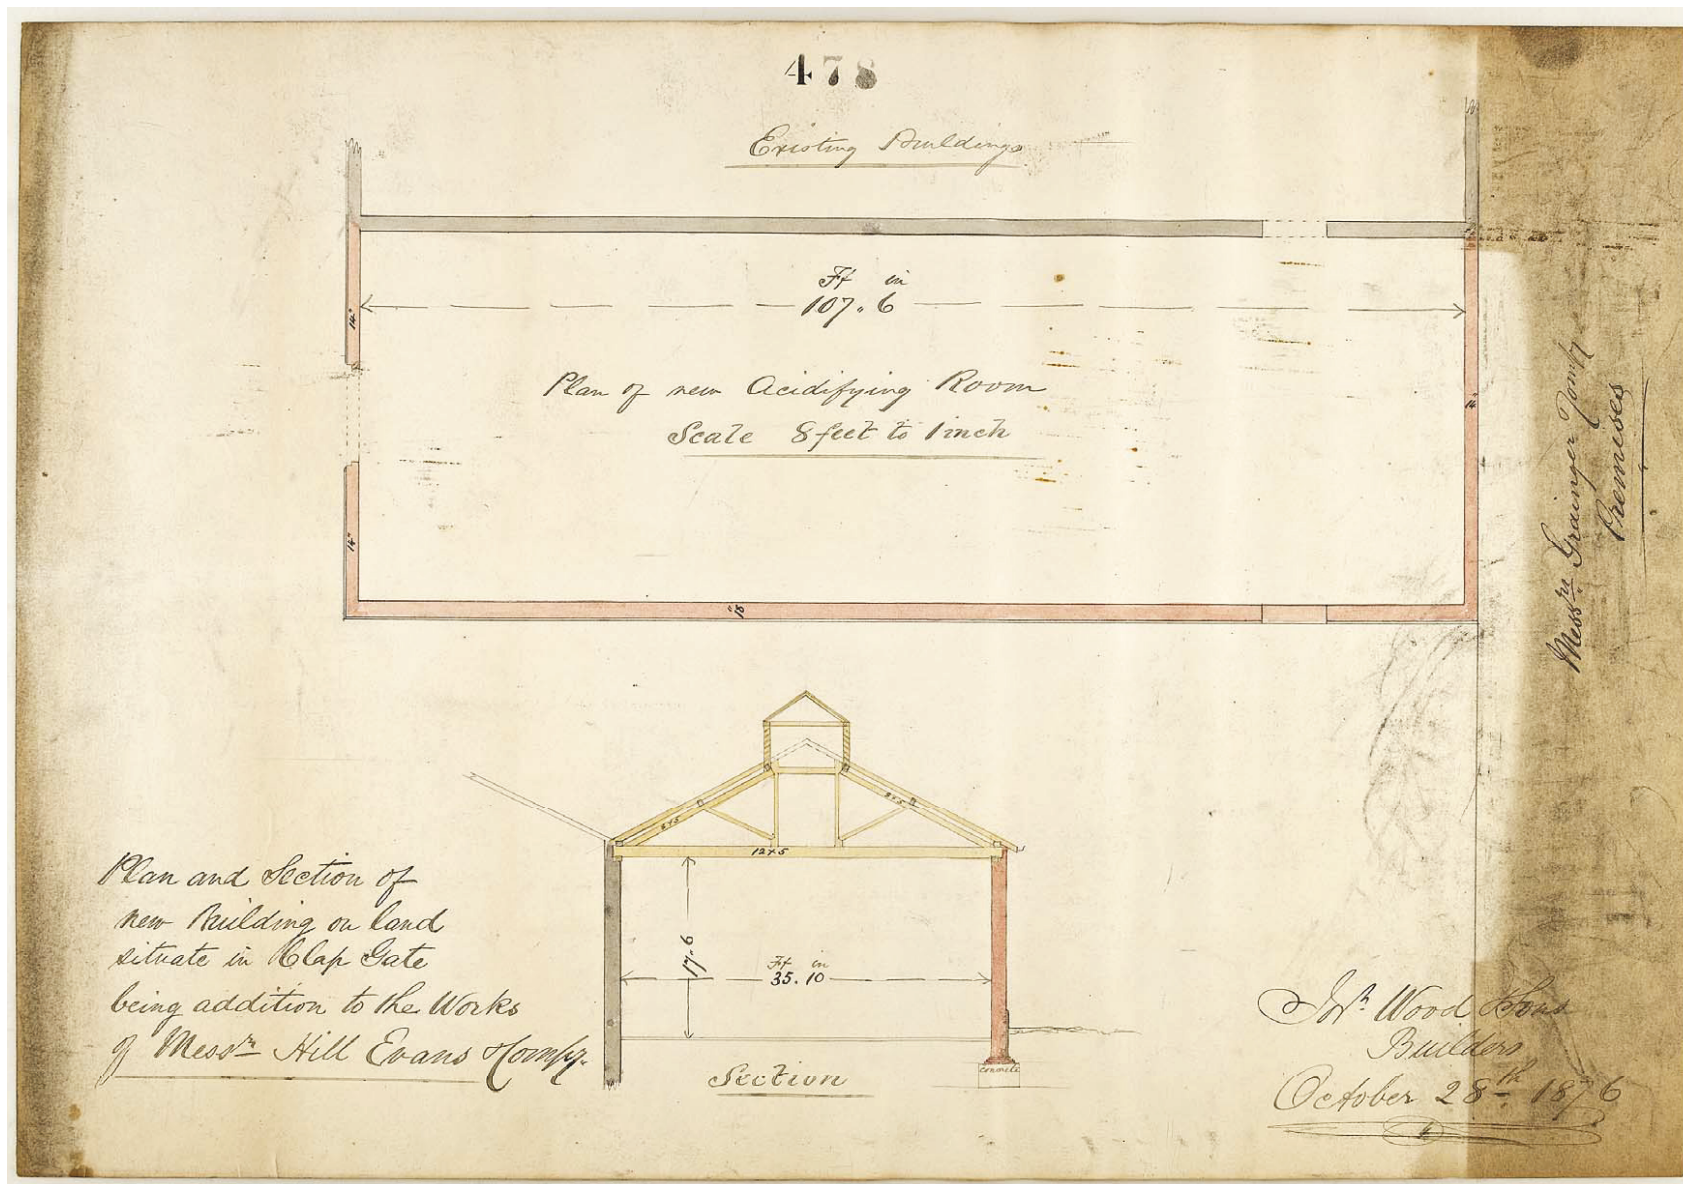 478
Existing Buildings
Ft in
107.6
14"
Plan of new Acidifying Room
Scale 8 feet to 1 inch
14"
14"
18"
Messrs Grainger & Compy
Premises
8x5
8x5
12x5
17.6
Ft in
35.10
concrete
Section
Plan and Section of
new Building on land
situate in Clap Gate
being addition to the Works
of Messrs Hill Evans & Compy.
Josh. Wood & Sons
Builders
October 28th 1876